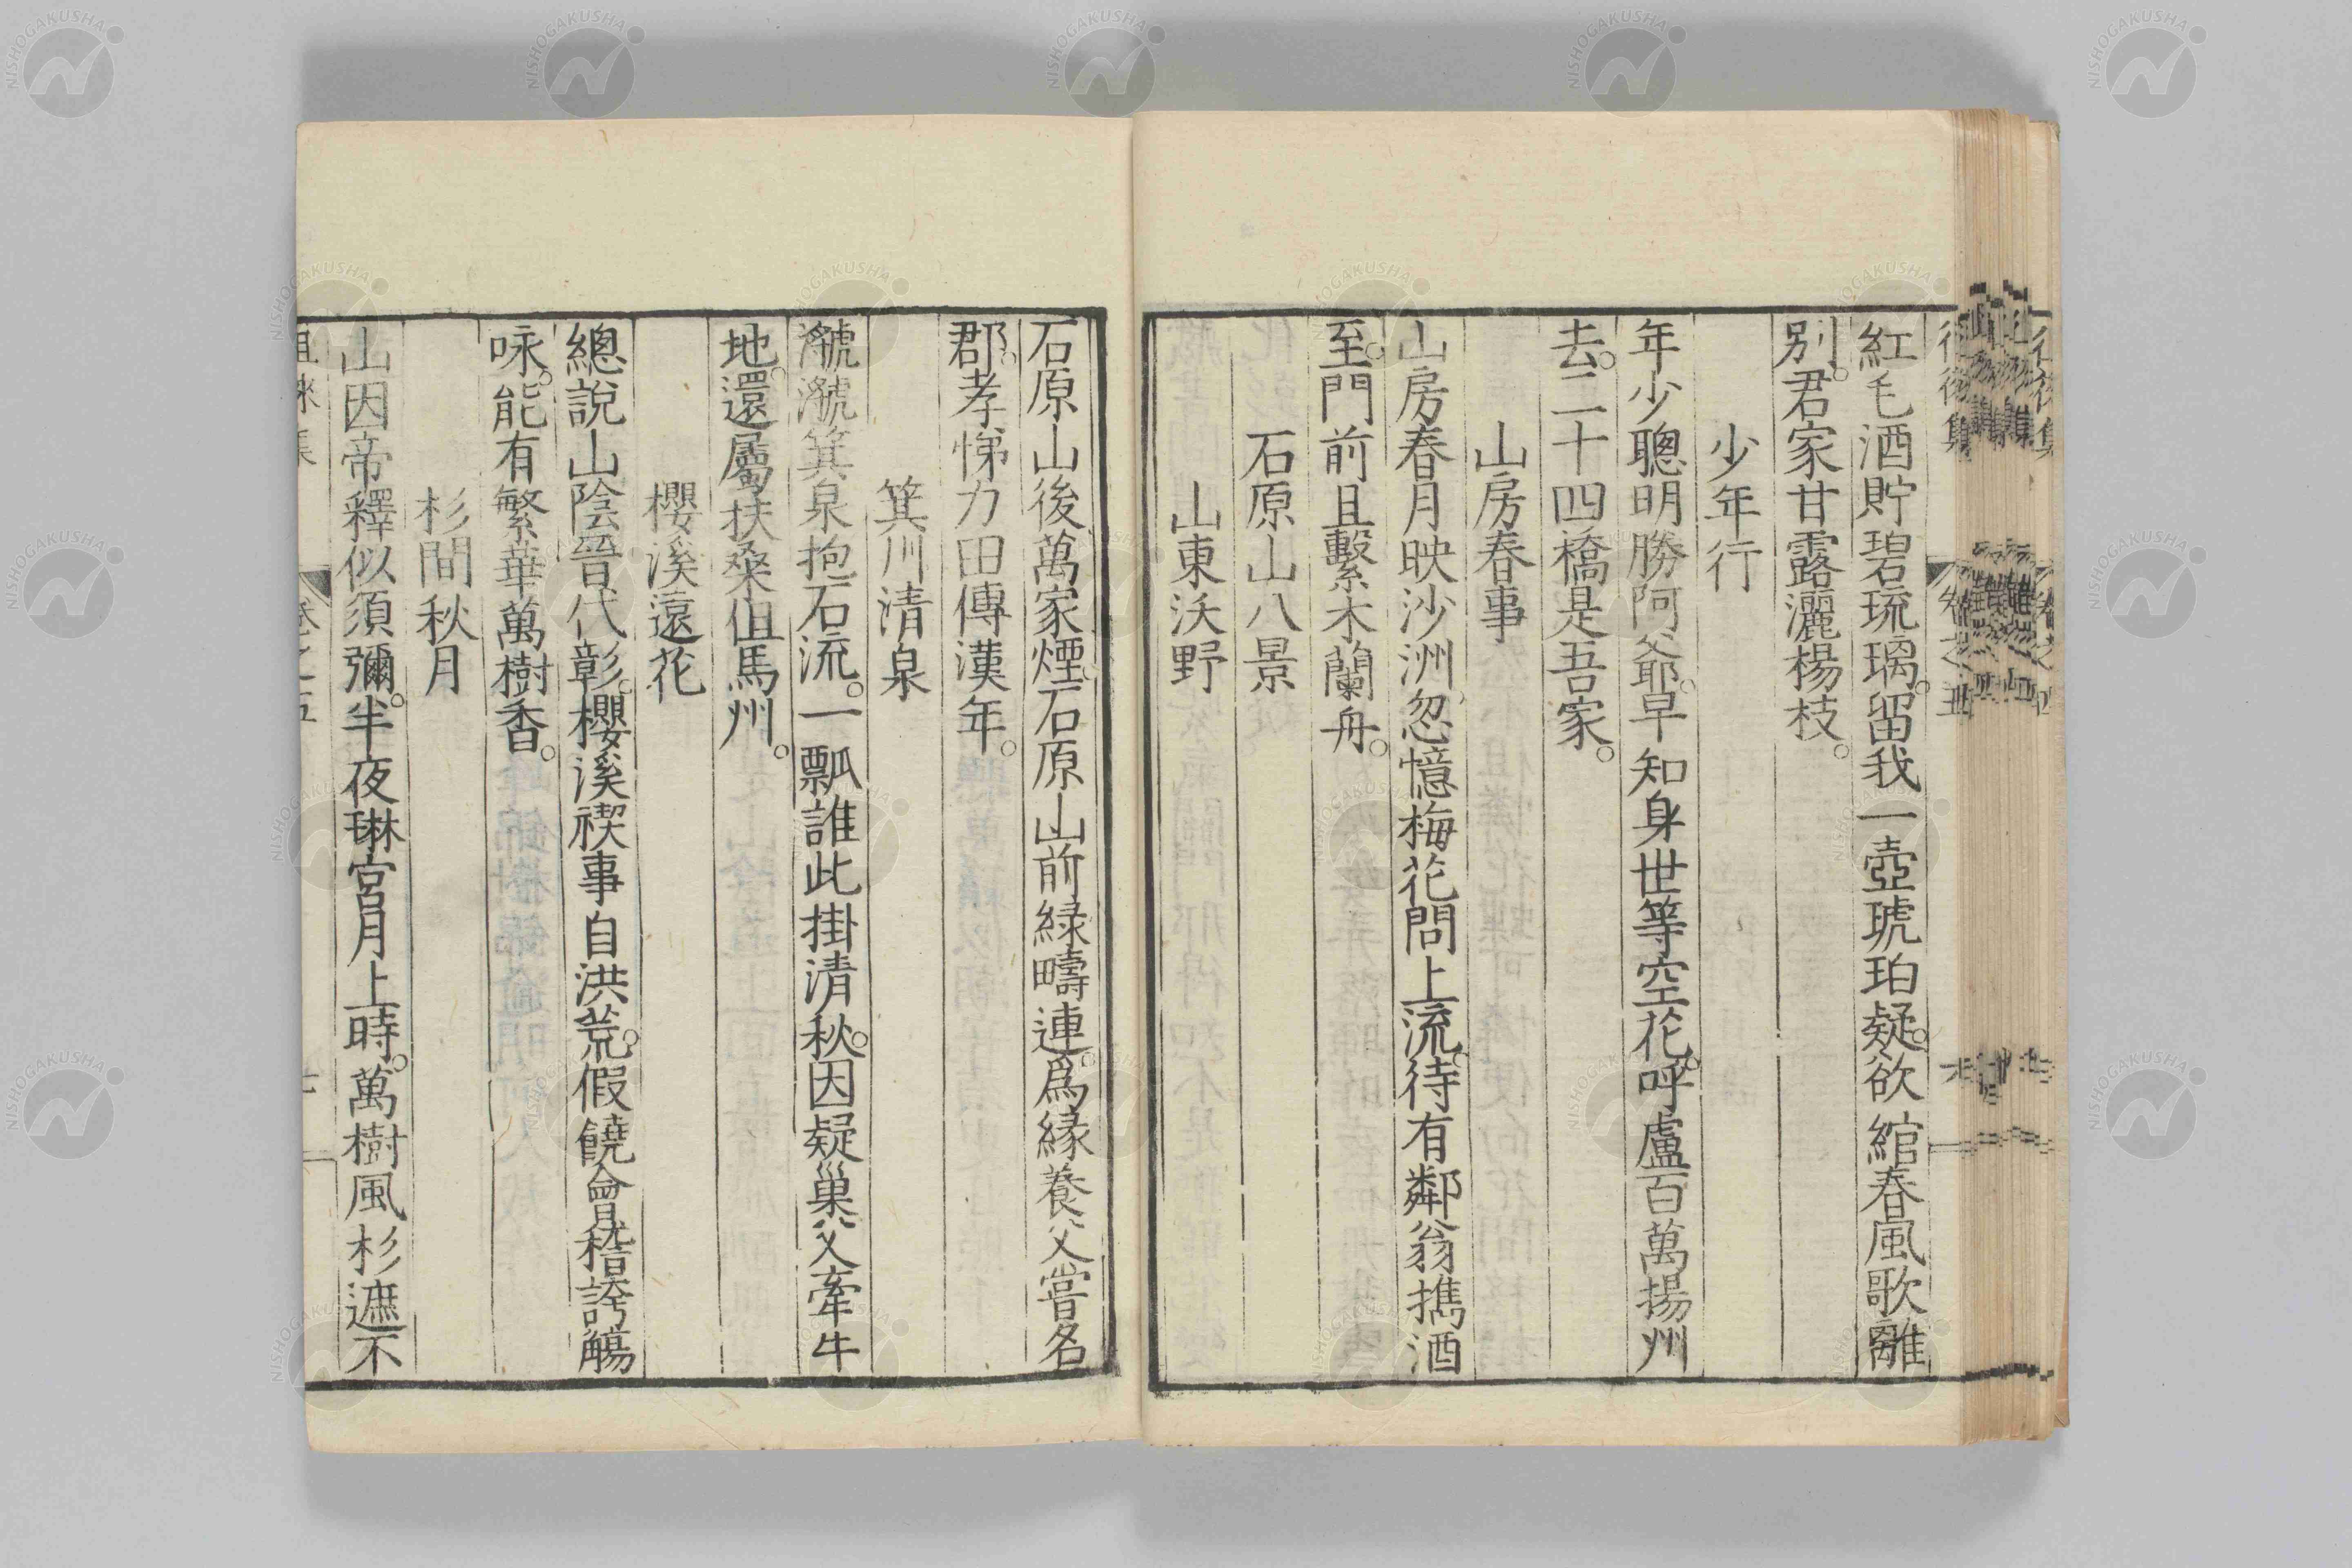 紅毛酒貯碧琉璃。留我一壺琥珀疑。欲綰春風歌離
別。君家甘露灑楊枝。
少年行
年少聰明勝阿爺。早知身世等空花。呼盧百萬揚州
去。二十四橋是吾家。
山房春事
山房春月映沙洲。忽憶梅花問上流。待有鄰翁携酒
至。門前且繫木蘭舟。
石原山八景
山東沃野
石原山後萬家煙。石原山前緑疇連。爲緣養父嘗名
郡。孝悌力田傳漢年。
箕川清泉
㶁㶁箕泉抱石流。一瓢誰此掛清秋。因疑巢父牽牛
地。還屬扶桑但馬州。
櫻溪遠花
總說山陰晉代彰。櫻溪禊事自洪荒。假饒會稽誇觴
咏。能有繁華萬樹香。
杉間秋月
山因帝釋似須彌。半夜琳宮月上時。萬樹風杉遮不
NISHOGAKUSHA